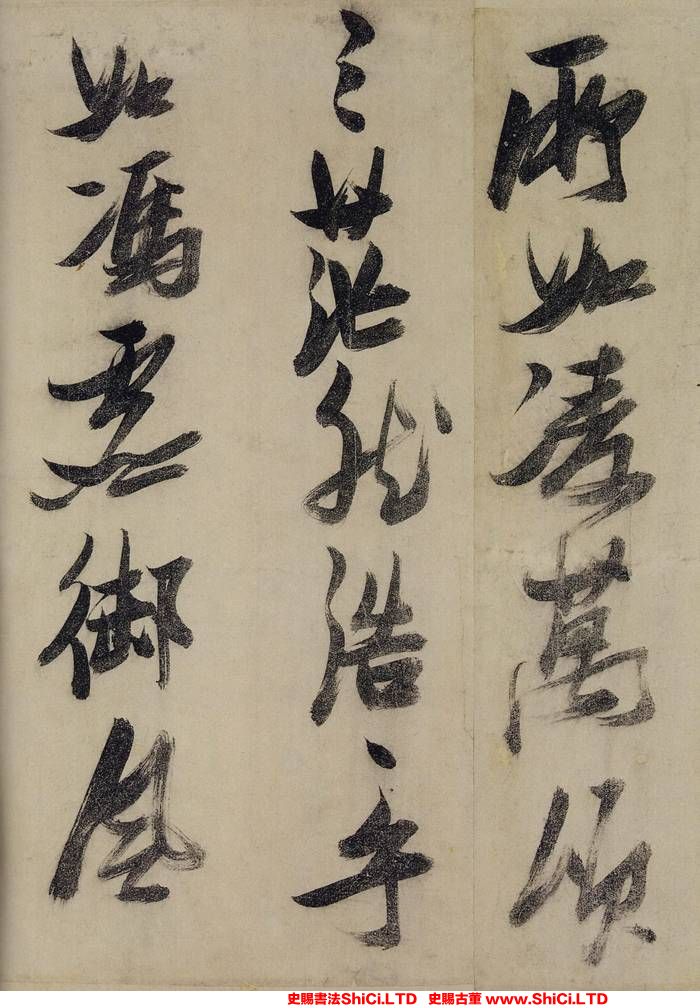 所如凌萬頃
之茫然浩〻乎
如馮虛御風
史賜書法ShiCi.LTD 史賜古董 www.ShiCi.LTD